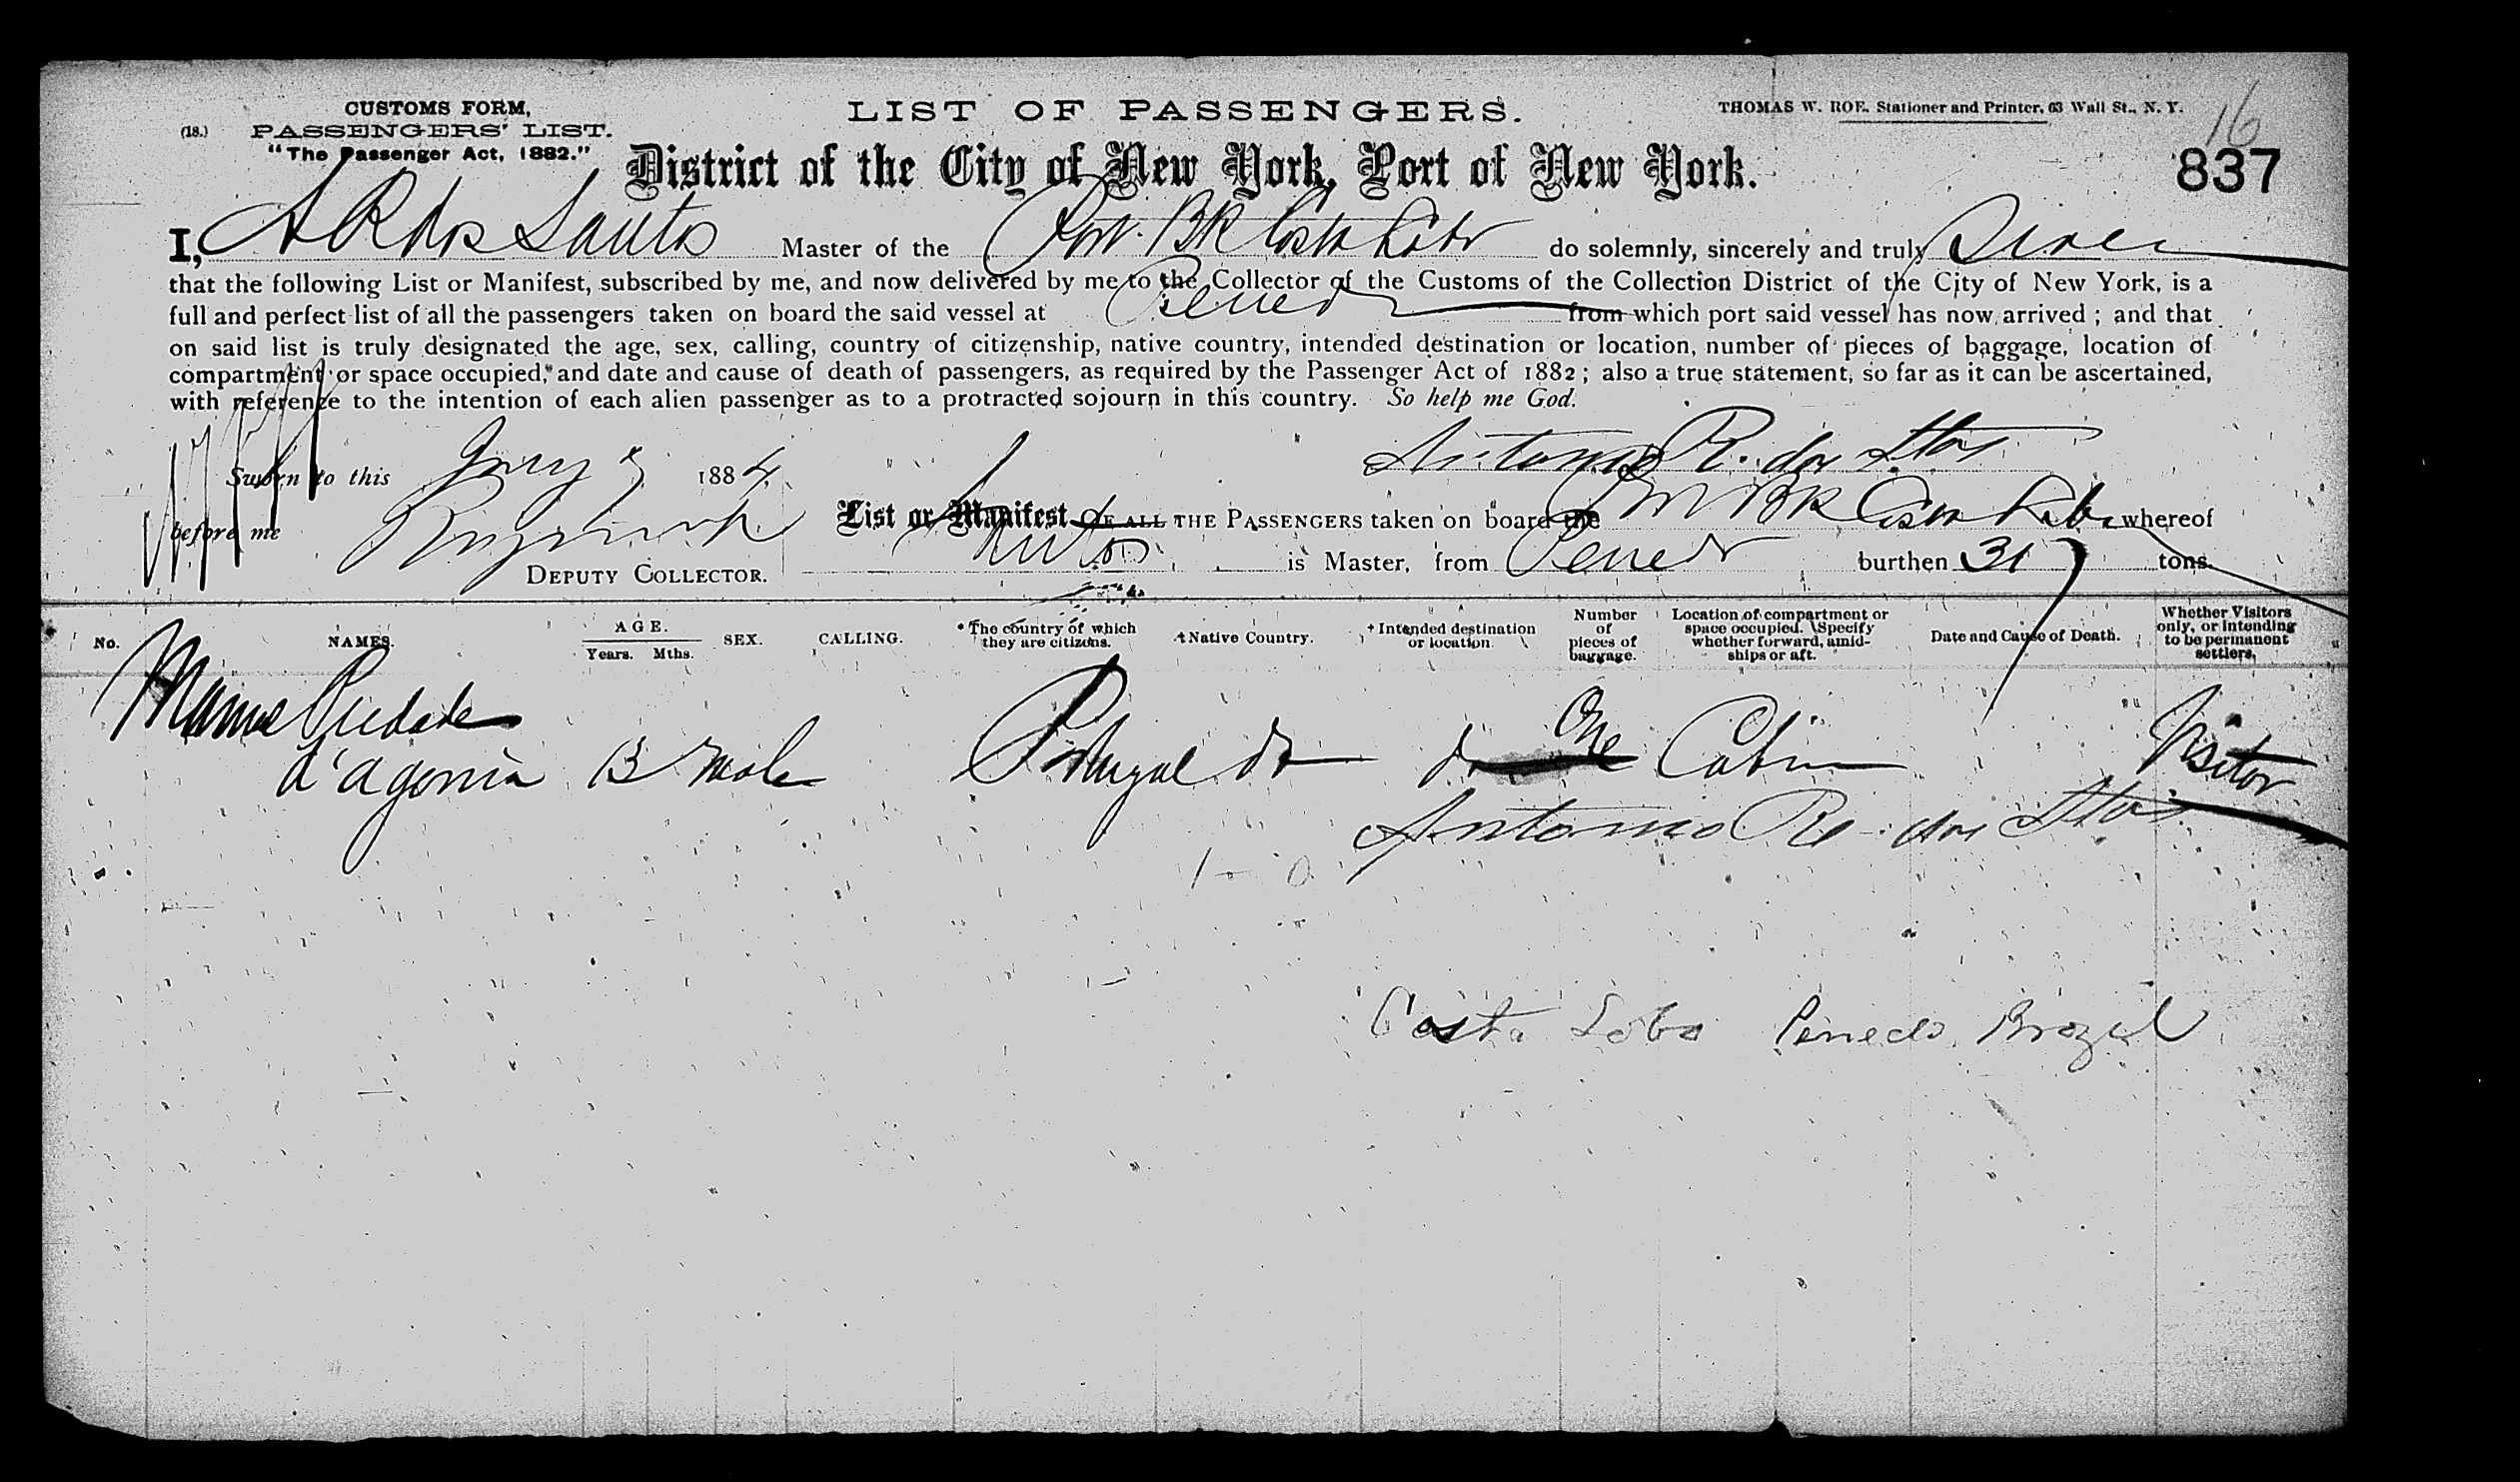 CUSTOMS FORM,
(18.) PASSENGERS' LIST.
"The Passenger Act, 1882."
LIST OF PASSENGERS.
THOMAS W. ROE. Stationer and Printer, 63 Wall St., N. Y.
16
837
District of the City of New York, Port of New York.
I, A R dos Santos Master of the Port. BK Costa Lobo do solemnly, sincerely and truly Swear
that the following List or Manifest, subscribed by me, and now delivered by me to the Collector of the Customs of the Collection District of the City of New York, is a
full and perfect list of all the passengers taken on board the said vessel at Penedo from which port said vessel has now arrived ; and that
on said list is truly designated the age, sex, calling, country of citizenship, native country, intended destination or location, number of pieces of baggage, location of
compartment or space occupied, and date and cause of death of passengers, as required by the Passenger Act of 1882 ; also a true statement, so far as it can be ascertained,
with reference to the intention of each alien passenger as to a protracted sojourn in this country. So help me God.
Sworn to this 1884
Antonio R. dos Stos
before me
DEPUTY COLLECTOR.
List or Manifest OF ALL THE PASSENGERS taken on board the Port BK Costa Lobo whereof
Santos is Master, from Penedo burthen 317 tons.
No. NAMES. AGE. Years. Mths. SEX. CALLING. * The country of which they are citizens. † Native Country. † Intended destination or location. Number of pieces of baggage. Location of compartment or space occupied. Specify whether forward, amidships or aft. Date and Cause of Death. Whether Visitors only, or intending to be permanent settlers.
Piedade
d'agonia 13 male Portugal do do One Cabin Visitor
Antonio R dos Stos
1 - 0
Costa Lobo Penedo, Brazil